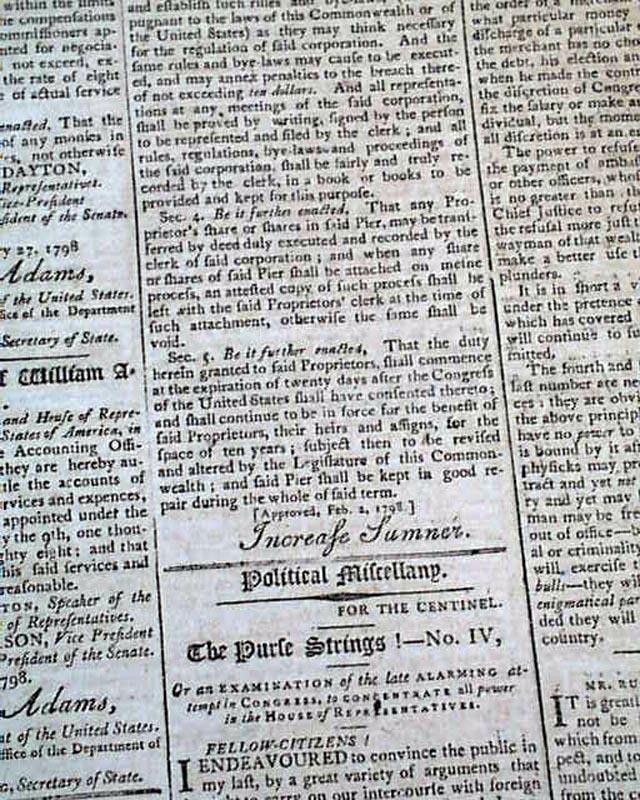 within the limits
compensations
ommissioners ap-
nted for negocia-
not exceed, ex-
the rate of eight
of actual service
enacted, That the
of any monies in
not otherwise
DAYTON,
Representatives.
Vice-President
sident of the Senate.
ry 27, 1798
Adams,
of the United States.
fice of the Department
Secretary of State.
f William A-
and House of Repre-
States of America, in
Accounting Offi-
they are hereby au-
tle the accounts of
rvices and expences,
appointed under the
y the 9th, one thou-
ghty eight; and that
his said services and
reasonable.
TON, Speaker of the
of Representatives.
SON, Vice President
President of the Senate.
798.
Adams,
nt of the United States.
ffice of the Department of
Secretary of State.
and establish such rules and bye-laws
pugnant to the laws of this Commonwealth or of
the United States) as they may think necessary
for the regulation of said corporation. And the
same rules and bye-laws may cause to be execut-
ed, and may annex penalties to the breach there-
of not exceeding ten dollars. And all representa-
tions at any meetings of the said corporation,
shall be proved by writing, signed by the person
to be represented and filed by the clerk; and all
rules, regulations, bye-laws and proceedings of
the said corporation, shall be fairly and truly re-
corded by the clerk, in a book or books to be
provided and kept for this purpose.
Sec. 4. Be it further enacted, That any Pro-
prietor's share or shares in said Pier, may be trans-
ferred by deed duly executed and recorded by the
clerk of said corporation; and when any share
or shares of said Pier shall be attached on mesne
process, an attested copy of such process shall be
left with the said Proprietors' clerk at the time of
such attachment, otherwise the same shall be
void.
Sec. 5. Be it further enacted, That the duty
herein granted to said Proprietors, shall commence
at the expiration of twenty days after the Congress
of the United States shall have consented thereto;
and shall continue to be in force for the benefit of
said Proprietors, their heirs and assigns, for the
space of ten years; subject then to be revised
and altered by the Legislature of this Common-
wealth; and said Pier shall be kept in good re-
pair during the whole of said term.
[Approved, Feb. 2, 1798.]
Increase Sumner.
Political Miscellany.
FOR THE CENTINEL.
The Purse Strings!—No. IV,
Or an EXAMINATION of the late ALARMING at-
tempt in CONGRESS, to CONCENTRATE all power
in the HOUSE of REPRESENTATIVES.
FELLOW-CITIZENS!
I ENDEAVOURED to convince the public in
my last, by a great variety of arguments that
to carry on our intercourse with foreign
what particular money
discharge of a particular
the merchant has no cho
the debt, his election an
when he made the cont
the discretion of Congre
fix the salary or make a
dividual, but the mome
all discretion is at an e
The power to refuse
the payment of amba
or other officers, whos
is no greater than th
Chief Justice to refus
the refusal more just
wayman of that weal
make a better use t
plunders.
It is in short a v
under the pretence
which has covered
will continue to
mitted.
The fourth and
last number are ne
ces: they are obvi
the above principl
have no power to
is bound by it a
physicks may p
tract and yet not
ry and yet may
man may be fre
out of office—b
al or criminalit
will, exercise t
bulls—they wi
enigmatical par
ded they will
country.
MR. RU
IT is great
not be
which from
pect, and to
undoubted
from the c